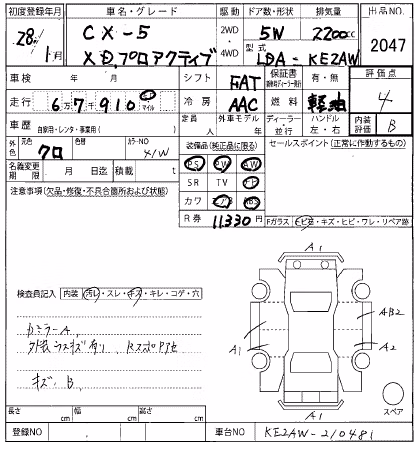 初度登録年月 車名・グレード 駆動 ドア数・形状 排気量 出品NO.
28年 1月 CX-5 2WD 5W 2200cc 2047
XD,プロアクティブ 4WD 型式 LDA-KE2AW
車検 年 月 シフト FAT 保証書 有・無 評価点
走行 6万7910 km マイル 冷房 AAC 燃料 軽油 4
車歴 自家用・レンタ・事業用( ) 定員 人 外車モデル 年 ディーラー・並行 ハンドル 左・右 内装評価 B
外色 元色 クロ 色替 カラーNO 41W 装備品(純正品に限る) セールスポイント(正常に作動するもの)
名義変更期限 月 日迄 積載 t PS PW AW
注意事項(欠品・修復・不具合箇所および状態) SR TV ナビ
カワ エアB ABS
R券 11330円 Fガラス トビ石・キズ・ヒビ・ワレ・リペア跡
A1
検査員記入 内装 汚れ・スレ・キズ・キレ・コゲ・穴
カミラーA AB2
外装うすキズ有り A1 A2
キズB
A1 スペア
長さ cm 幅 cm 高さ cm
登録NO 車台NO KE2AW-210481